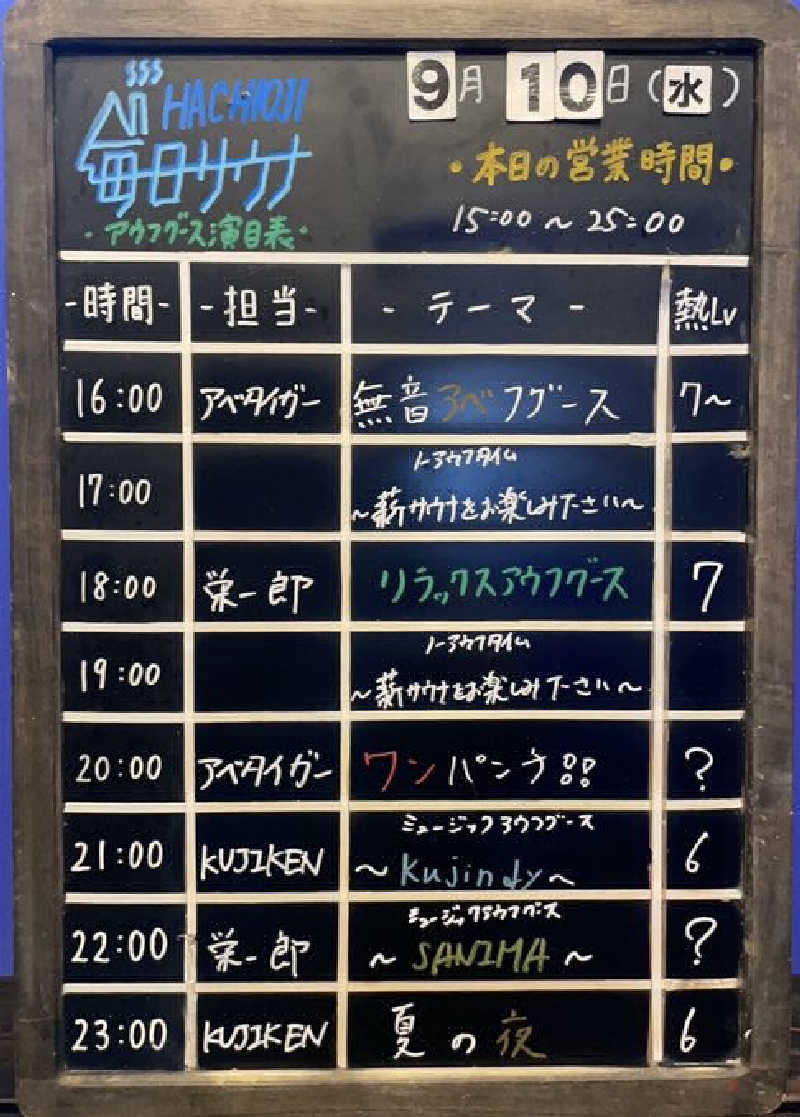 HACHIOJI
毎日サウナ
・アウフグース演目表・
9月10日(水)
・本日の営業時間・
15:00 ~ 25:00
-時間- -担当- -テーマ- 熱Lv
16:00 アベタイガー 無音アベフグース 7~
ノーアウフタイム
17:00 ~薪サウナをお楽しみ下さい~
18:00 栄一郎 リラックスアウフグース 7
ノーアウフタイム
19:00 ~薪サウナをお楽しみ下さい~
20:00 アベタイガー ワンパンチ!!! ?
ミュージックアウフグース
21:00 KUJIKEN ~Kujindy~ 6
ミュージックアウフグース
22:00 栄一郎 ~SANIMA~ ?
23:00 KUJIKEN 夏の夜 6